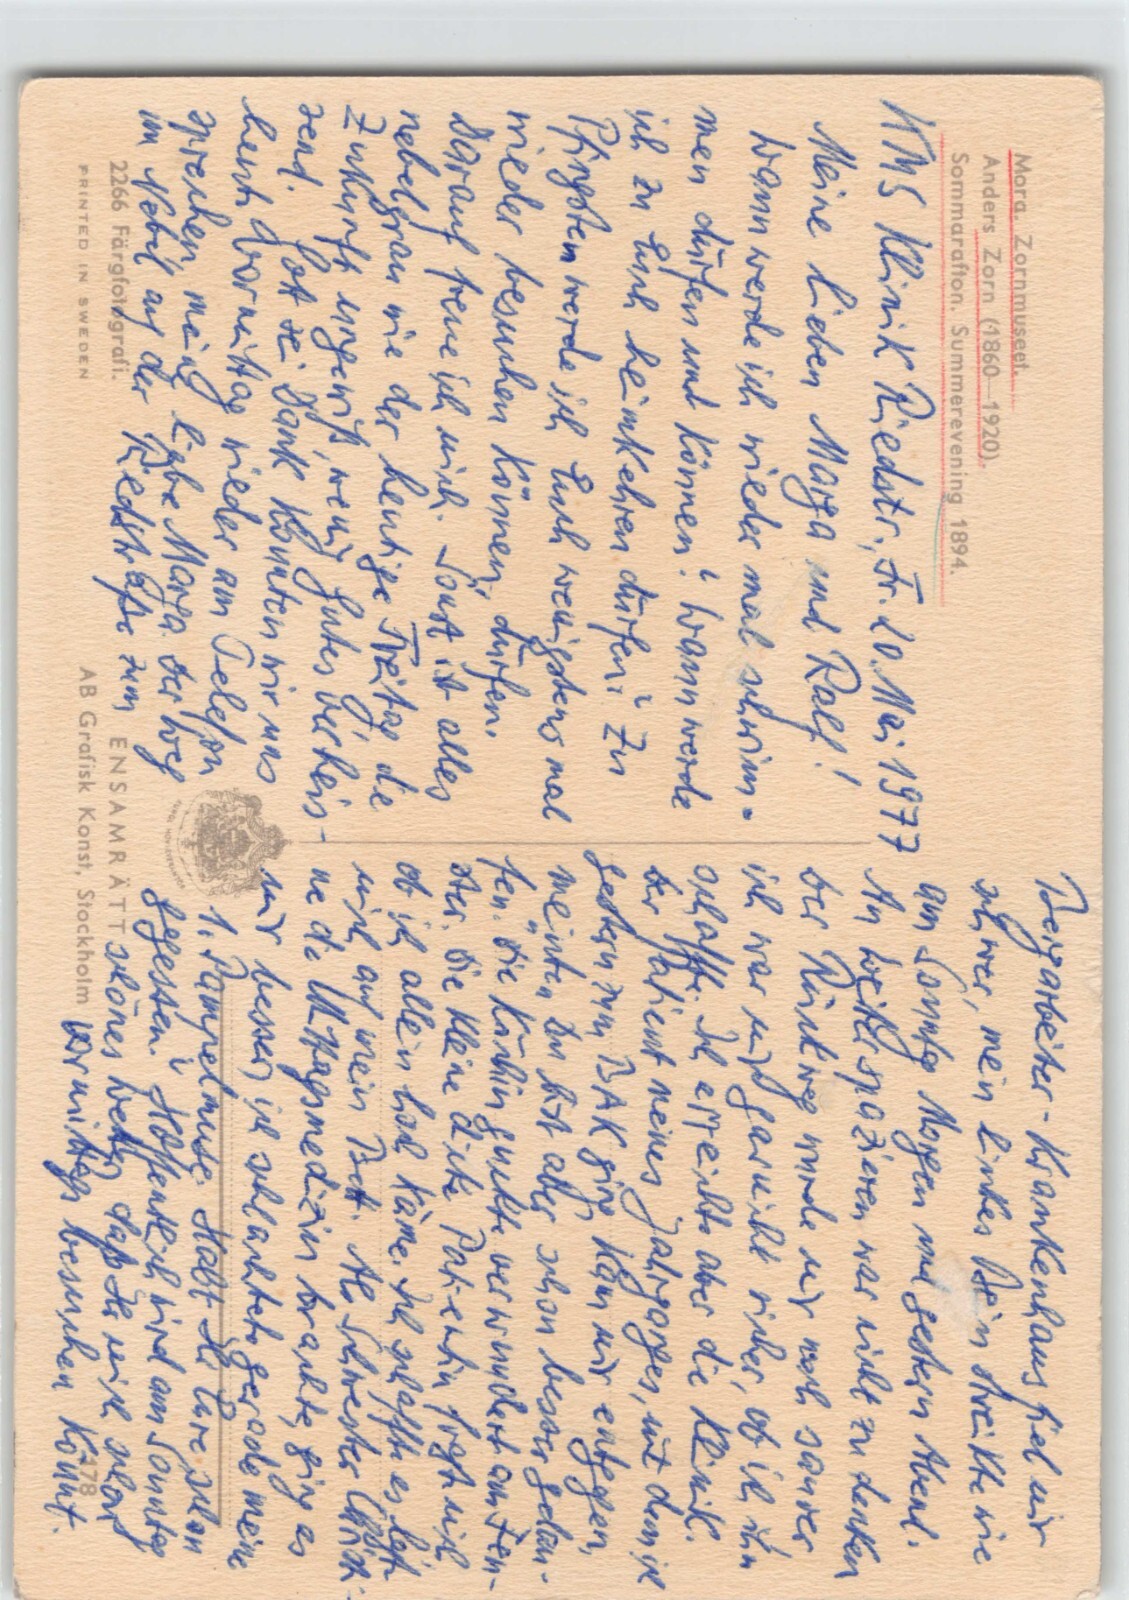 Mora. Zornmuseet.
Anders Zorn (1860—1920).
Sommarafton. Summerevening 1894.
KMS Klinik Riedstr., Fr. 20. Mai 1977
Meine lieben Marga und Ralf!
Wann werde ich wieder mal schwim-
men dürfen und können? Wann werde
ich zu Euch heimkehren dürfen? Zu
Pfingsten werde ich Euch wenigstens mal
wieder besuchen können, dürfen.
Darauf freue ich mich. Sonst ist alles
nebelgrau wie der heutige Freitag, die
Zukunft ungewiß, wenig Gutes verheis-
send. Gott sei Dank konnten wir uns
heut Vormittag wieder am Telefon
sprechen, meine liebe Marga. Der Weg
im Nebel auf der Riedstraße zum
2266 Färgfotografi.
PRINTED IN SWEDEN
ENSAMRÄTT
AB Grafisk Konst, Stockholm
178
-Krankenhaus fiel mir
schwer, mein linkes Bein streikte wie
am Sonntag Morgen und gestern Abend.
An weiterspazieren war nicht zu denken
der Rückweg wurde mir noch saurer
ich war mir gar nicht sicher, ob ich ihn
schaffe. Ich erreichte aber die Klinik.
Der Patient meines Jahrganges, mit dem ich
gestern zum BAK ging kam mir entgegen,
meinte: Du bist aber schon besser gelau-
fen. Die Köchin guckte verwundert am Fen-
ster. Die kleine dicke Patientin fragt mich
ob ich allein hoch käme. Ich schaffte es bis
mich auf mein Bett. Als Schwester Christi-
ne die Mittagsmedizin brachte, ging es
mir besser, ich schlachtete gerade meine
1. Pampelmuse. Habt Ihr Eure schon
gegessen? Hoffentlich wird am Sonntag
schönes Wetter, daß Ihr mich schon
vormittags besuchen könnt.